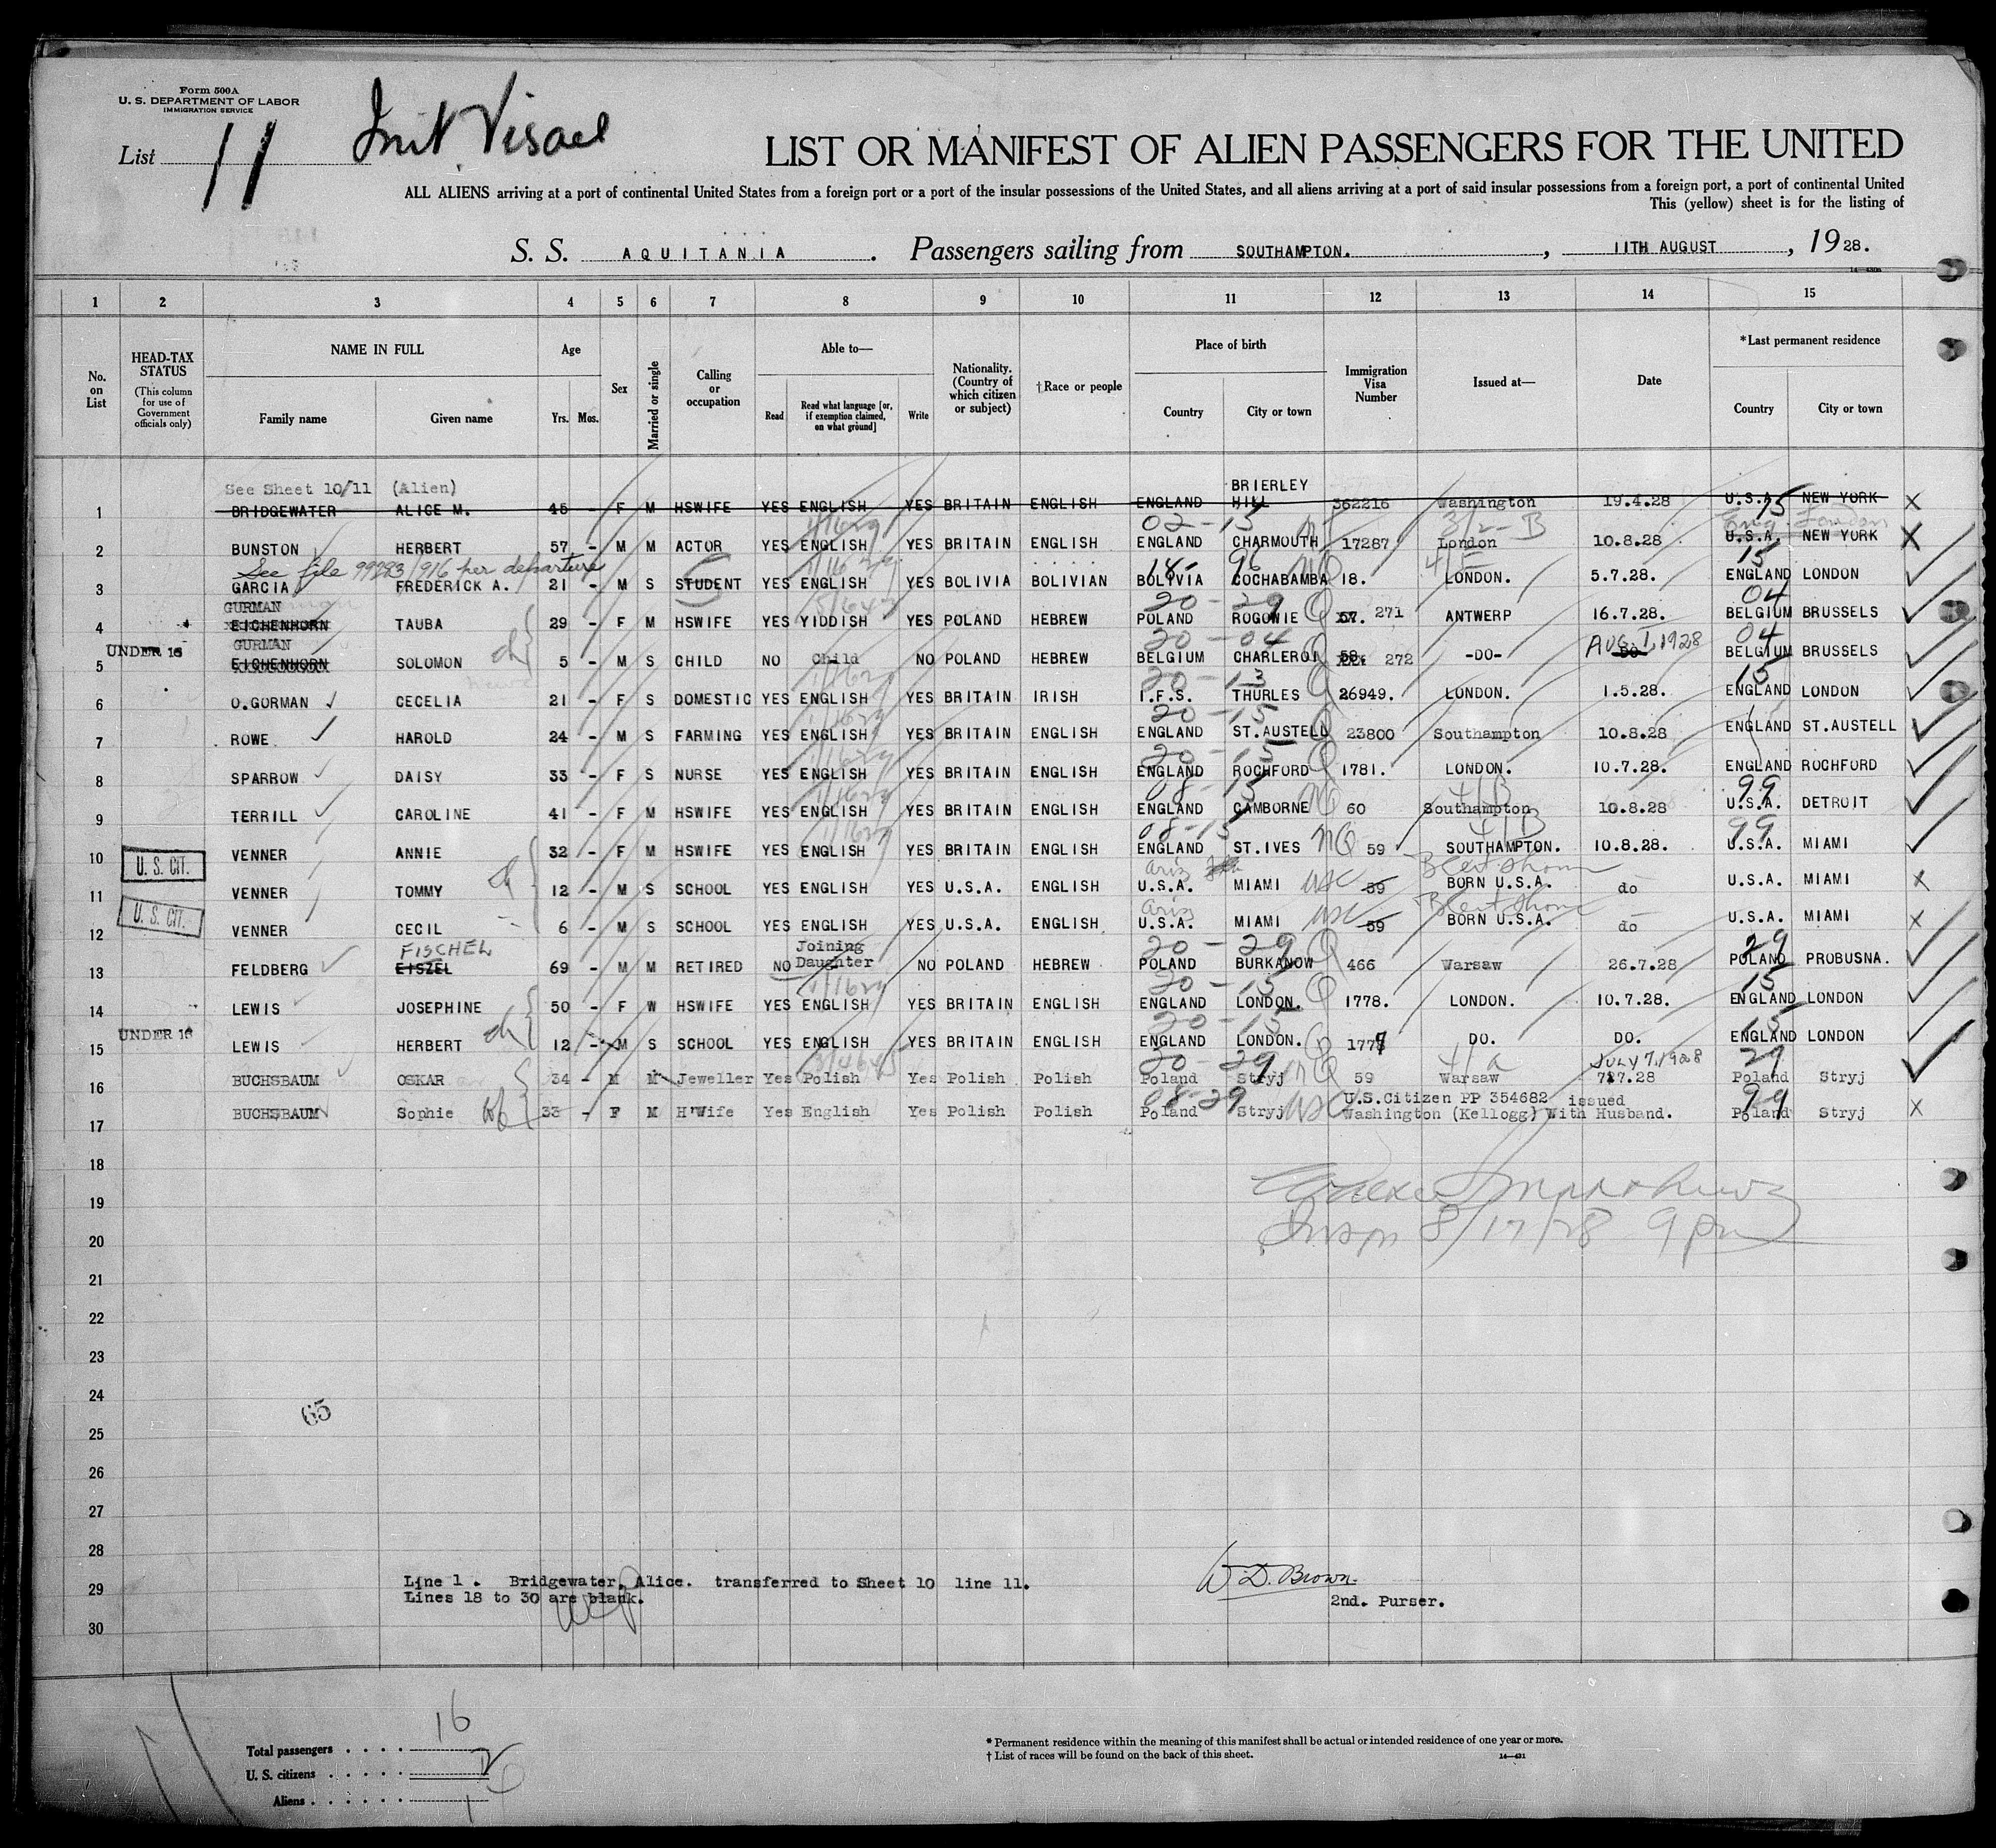 Form 500A
U. S. DEPARTMENT OF LABOR
IMMIGRATION SERVICE
List 11
LIST OR MANIFEST OF ALIEN PASSENGERS FOR THE UNITED
ALL ALIENS arriving at a port of continental United States from a foreign port or a port of the insular possessions of the United States, and all aliens arriving at a port of said insular possessions from a foreign port, a port of continental United
This (yellow) sheet is for the listing of
S. S. AQUITANIA. Passengers sailing from SOUTHAMPTON. , 11TH AUGUST , 1928.
1 2 3 4 5 6 7 8 9 10 11 12 13 14 15
No. on List
HEAD-TAX STATUS
(This column for use of Government officials only)
NAME IN FULL
Family name Given name
Age
Yrs. Mos.
Sex
Married or single
Calling or occupation
Able to—
Read Read what language [or, if exemption claimed, on what ground] Write
Nationality. (Country of which citizen or subject)
†Race or people
Place of birth
Country City or town
Immigration Visa Number
Issued at—
Date
*Last permanent residence
Country City or town
See Sheet 10/11 (Alien) BRIERLEY
1 BRIDGEWATER ALICE M. 45 - F M HSWIFE YES ENGLISH YES BRITAIN ENGLISH ENGLAND HILL 362216 Washington 19.4.28 U.S.A. NEW YORK X
02-15 3/2-B Eng. London
2 BUNSTON HERBERT 57 - M M ACTOR YES ENGLISH YES BRITAIN ENGLISH ENGLAND CHARMOUTH 17287 London 10.8.28 U.S.A. NEW YORK X
See file 99283/916 her departure 18-96 15
3 GARCIA FREDERICK A. 21 - M S STUDENT YES ENGLISH YES BOLIVIA BOLIVIAN BOLIVIA COCHABAMBA 18. LONDON. 5.7.28. ENGLAND LONDON
GURMAN 20-29 04
4 EICHENHORN TAUBA 29 - F M HSWIFE YES YIDDISH YES POLAND HEBREW POLAND ROGOWIE 57. 271 ANTWERP 16.7.28. BELGIUM BRUSSELS
UNDER 16 GURMAN 20-04 AUG. 1, 1928 04
5 EICHENHORN SOLOMON 5 - M S CHILD NO Child NO POLAND HEBREW BELGIUM CHARLEROI 58. 272 -DO- DO BELGIUM BRUSSELS
20-13 15
6 O.GORMAN CECELIA 21 - F S DOMESTIC YES ENGLISH YES BRITAIN IRISH I.F.S. THURLES 26949. LONDON. 1.5.28. ENGLAND LONDON
20-15
7 ROWE HAROLD 24 - M S FARMING YES ENGLISH YES BRITAIN ENGLISH ENGLAND ST.AUSTELL 23800 Southampton 10.8.28 ENGLAND ST.AUSTELL
20-15
8 SPARROW DAISY 33 - F S NURSE YES ENGLISH YES BRITAIN ENGLISH ENGLAND ROCHFORD 1781. LONDON. 10.7.28. ENGLAND ROCHFORD
08-15 4/B 99
9 TERRILL CAROLINE 41 - F M HSWIFE YES ENGLISH YES BRITAIN ENGLISH ENGLAND CAMBORNE 60 Southampton 10.8.28 U.S.A. DETROIT
08-15 4/B 99
10 U. S. CIT. VENNER ANNIE 32 - F M HSWIFE YES ENGLISH YES BRITAIN ENGLISH ENGLAND ST.IVES NQ 59 SOUTHAMPTON. 10.8.28. U.S.A. MIAMI
Ariz
11 U. S. CIT. VENNER TOMMY 12 - M S SCHOOL YES ENGLISH YES U.S.A. ENGLISH U.S.A. MIAMI USC 59 BORN U.S.A. do U.S.A. MIAMI X
Ariz
12 VENNER CECIL 6 - M S SCHOOL YES ENGLISH YES U.S.A. ENGLISH U.S.A. MIAMI USC 59 BORN U.S.A. do U.S.A. MIAMI X
FISCHEL Joining 20-29 Q 29
13 FELDBERG EISZEL 69 - M M RETIRED NO Daughter NO POLAND HEBREW POLAND BURKANOW 466 Warsaw 26.7.28 POLAND PROBUSNA.
20-15 15
14 LEWIS JOSEPHINE 50 - F W HSWIFE YES ENGLISH YES BRITAIN ENGLISH ENGLAND LONDON. 1778. LONDON. 10.7.28. ENGLAND LONDON
UNDER 16 20-15 15
15 LEWIS HERBERT ch 12 - M S SCHOOL YES ENGLISH YES BRITAIN ENGLISH ENGLAND LONDON. 1777 DO. DO. ENGLAND LONDON
20-29 4/a JULY 7, 1928 29
16 BUCHSBAUM OSKAR 34 - M M Jeweller Yes Polish Yes Polish Polish Poland Stryj NQ 59 Warsaw 7.7.28 Poland Stryj
08-29 U.S.Citizen PP 354682 issued 99
17 BUCHSBAUM Sophie wf 33 - F M H'Wife Yes English Yes Polish Polish Poland Stryj USC Washington (Kellogg) With Husband. Poland Stryj X
18
19
Insp 8/17/28 9 pm
20
21
22
23
24
65
25
26
27
28
Line 1. Bridgewater, Alice. transferred to Sheet 10 line 11. W D. Brown.
29
Lines 18 to 30 are blank. 2nd. Purser.
30
Total passengers 16
U. S. citizens
Aliens
* Permanent residence within the meaning of this manifest shall be actual or intended residence of one year or more.
† List of races will be found on the back of this sheet. 14—431